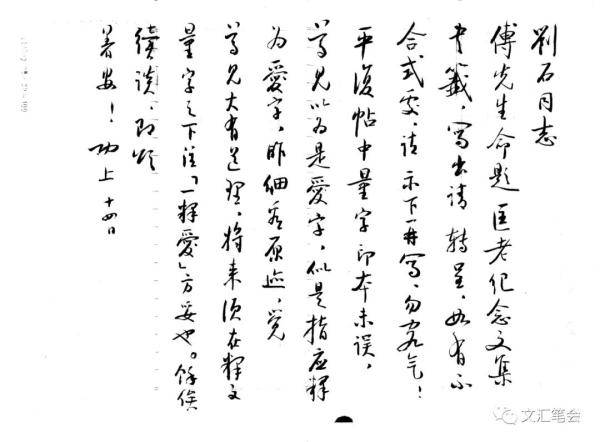 劉石同志
傅先生命題 匡老纪念文集
书籤,写出请 转呈,如有不
合式处,请示下再写,勿客气!
平復帖中量字印本未误,
尊兄以为是愛字,似是指应释
为愛字,昨细看原迹,觉
尊兄大有道理,将来须在释文
量字之下注「一释愛」方妥也。馀俟
续谈,即颂
暑安! 功上 十四日
文汇笔会